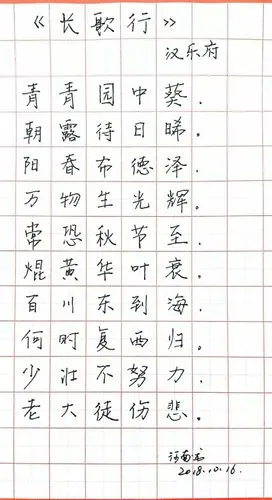 《长歌行》
汉乐府
青青园中葵.
朝露待日晞。
阳春布德泽.
万物生光辉。
常恐秋节至.
焜黄华叶衰。
百川东到海.
何时复西归。
少壮不努力.
老大徒伤悲。
2018.10.16.